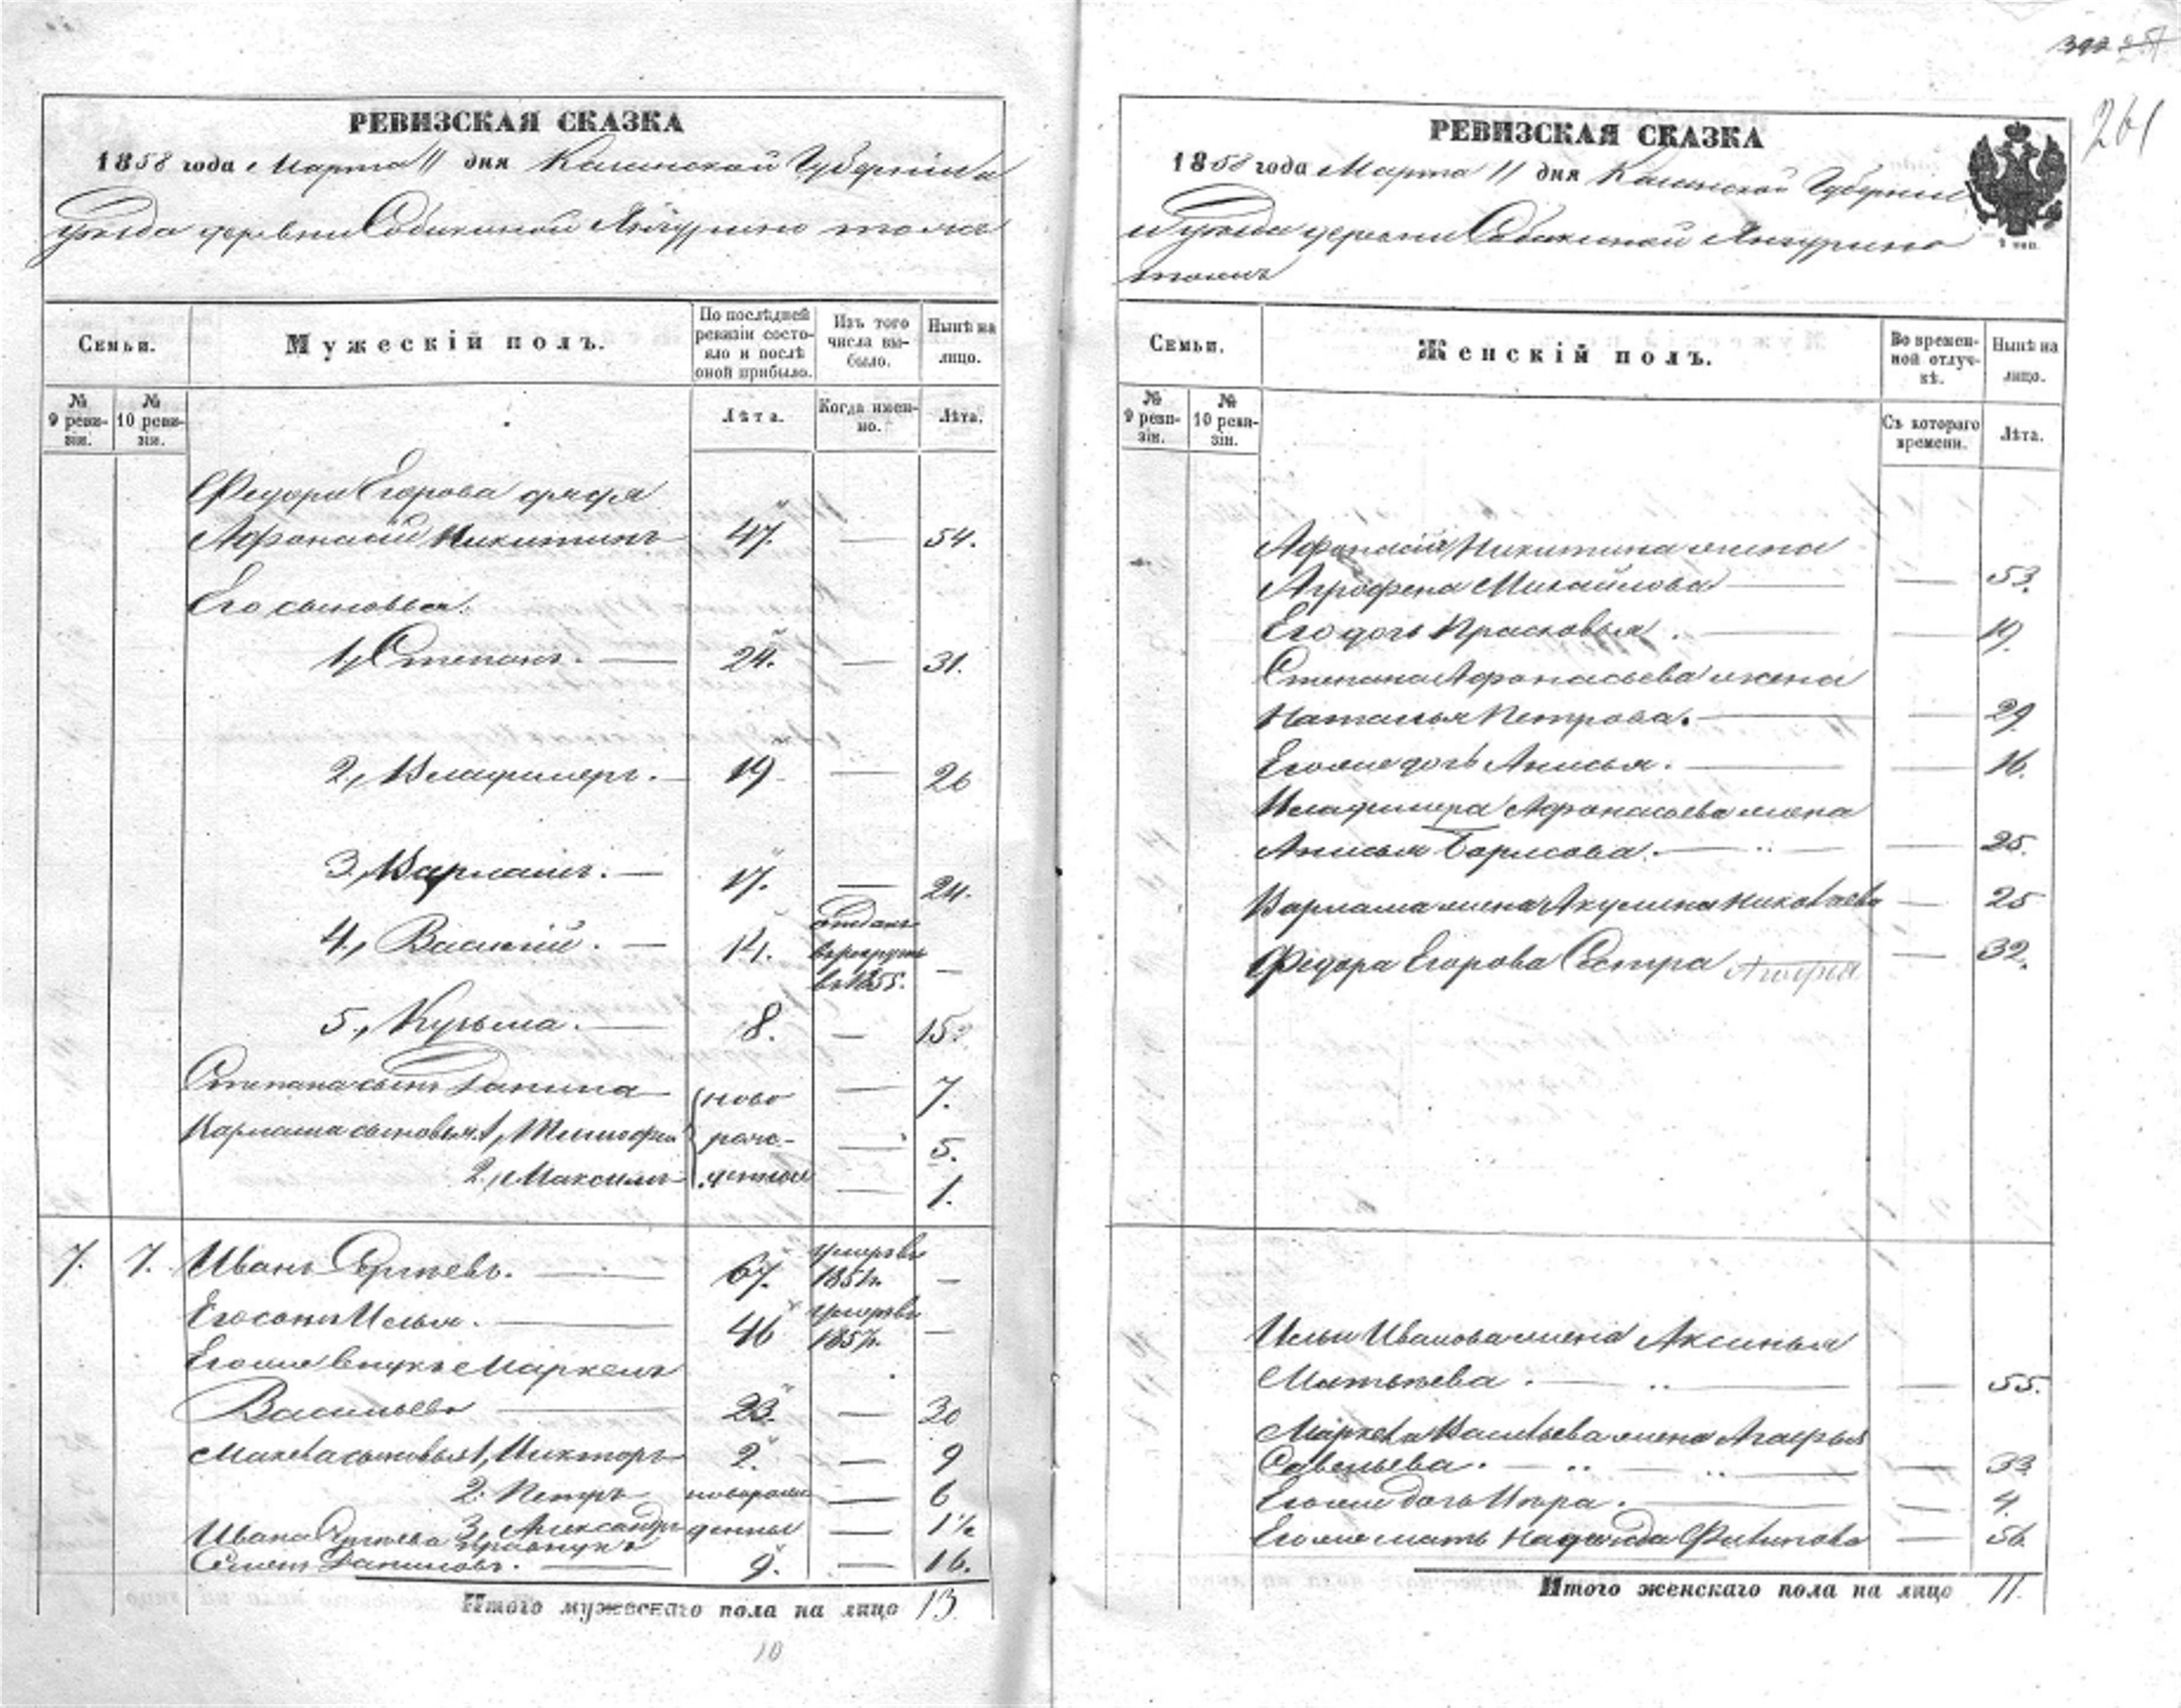 261
РЕВИЗСКАЯ СКАЗКА
1858 года Марта 11 дня Казанской Губернiи и
уѣзда деревни Собакиной Янчурино тожъ
Семьи.
Мужескiй полъ.
По послѣдней ревизiи состояло и послѣ оной прибыло.
Изъ того числа выбыло.
Нынѣ на лицо.
№ 9 ревизiи.
№ 10 ревизiи.
Лѣта.
Когда именно.
Лѣта.
Федора Егорова дядя
Афонасiй Никитинъ 47. — 54.
Его сыновья.
1, Степанъ. — 24. — 31.
2, Владимеръ. — 19 — 26
3, Варламъ. — 17. — 24.
4, Василiй. — 14. отданъ в рекруты въ 1855. —
5, Кузьма. — 8. — 15.
Степана сынъ Данила ново — 7.
Варлама сыновья 1, Тимофей рож- — 5.
2, Максимъ денные — 1.
7. 7. Иванъ Сергѣевъ. — 67. умеръ въ 1851 —
Его сынъ Илья. — 46 умеръ въ —
Его же внукъ Маркелъ
Васильевъ — 23. — 30
сыновья 1, Викторъ 2. — 9
2. Петръ новорож — 6
3, Александръ денные — 1½
Ивана Сергѣева правнукъ
Семенъ Даниловъ. — 9. — 16.
Итого мужескаго пола на лицо 13.
10
РЕВИЗСКАЯ СКАЗКА
1858 года Марта 11 дня Казанской Губернiи
и уѣзда деревни Собакиной Янчурино
тожъ
2 коп.
Семьи.
Женскiй полъ.
Во временной отлучкѣ.
Нынѣ на лицо.
№ 9 ревизiи.
№ 10 ревизiи.
Съ котораго времени.
Лѣта.
Афонасiя Никитина жена
Агрофена Михайлова — — 53.
Его дочь Прасковья. — — 19.
Степана Афонасьева жена
Наталья Петрова. — — 29.
Его же дочь Анисья. — — 16.
Владимера Афонасьева жена
Анисья Борисова. — — 25.
Варлама жена Акулина Николаева — 25
Федора Егорова Сестра — 32.
Ильи Иванова жена Аксинья
Матвѣева. — — 55.
Маркела Васильева жена Агафья
Савельева. — — 33
Его же дочь — — 4.
Его же мать Надежда Филипова — 56.
Итого женскаго пола на лицо 11.